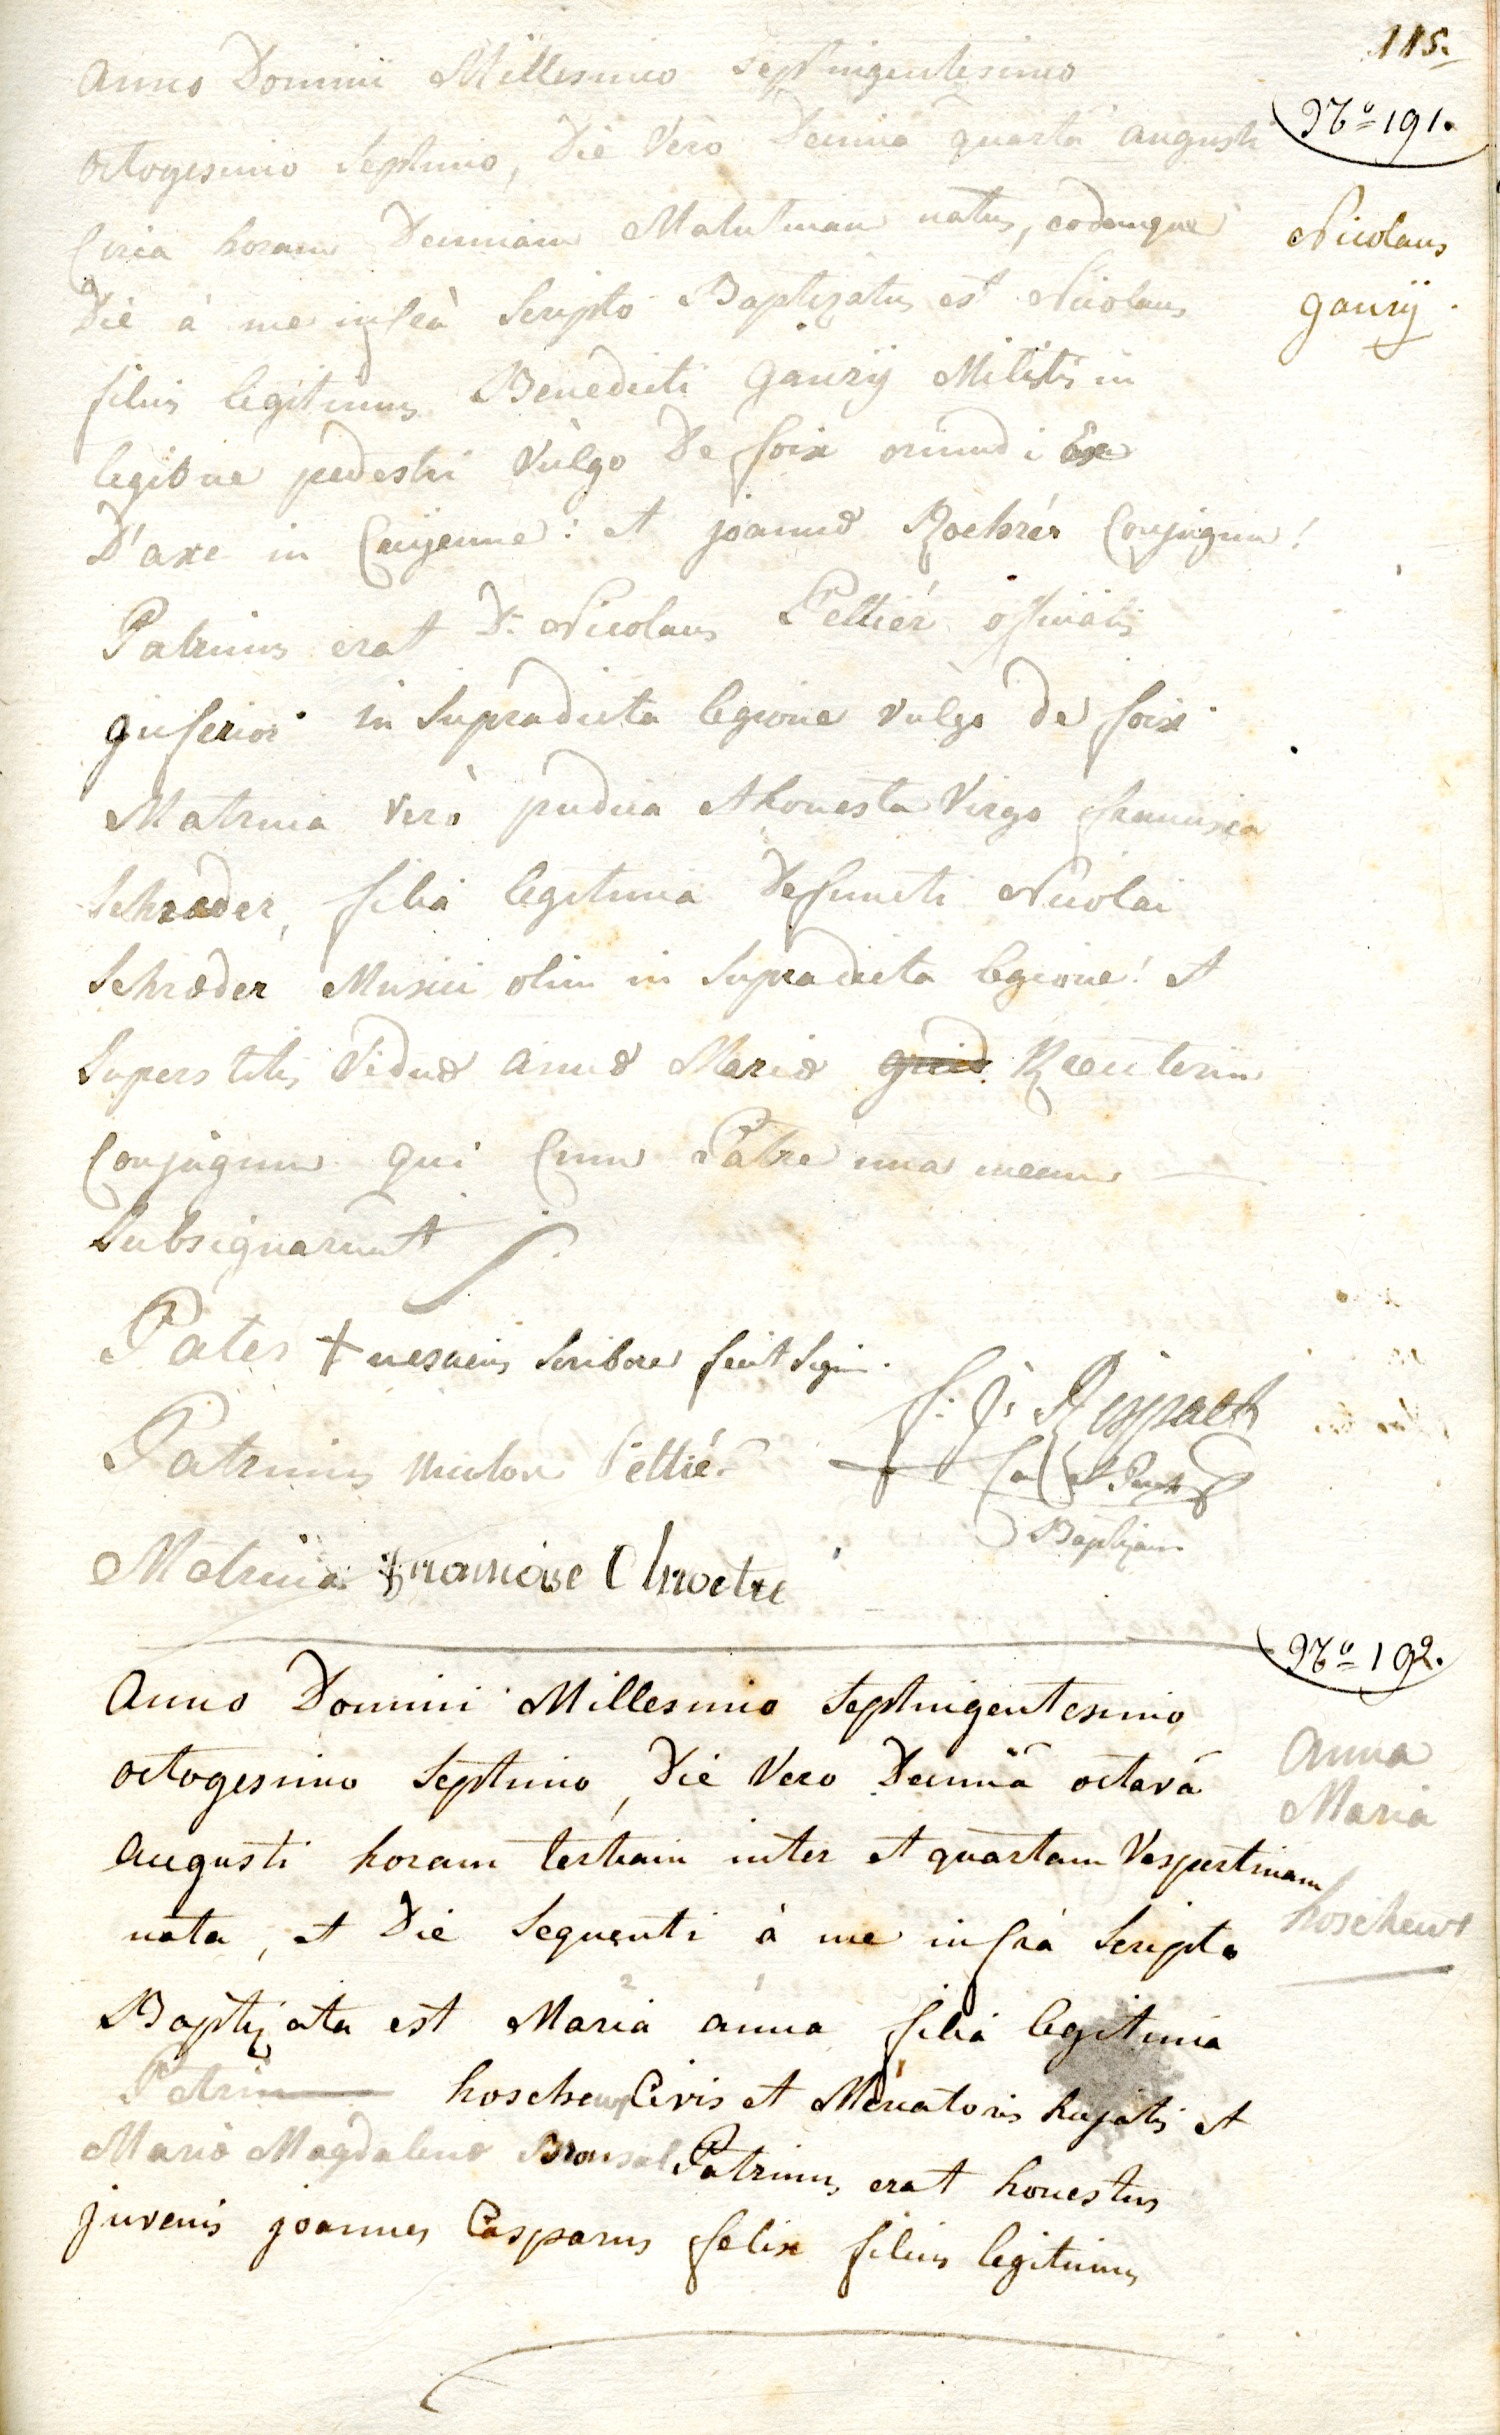 115.
Nº 191.
Anno Domini Millesimo Septingentesimo
octogesimo Septimo, Die Vero Decimâ quartâ augusti
Circa horam Decimam Matutinam natus, eodemque
Die à me infrà Scripto Baptizatus est Nicolaus
filius legitimus Benedicti Gaurÿ Militis in
legione pedestri Vulgo De foix oriundi Ex
D'axe in : et joannæ Roehrér Conjugum!
Nicolaus
Gaurÿ
Patrinus erat D: Nicolaus Pelliér officialis
inferior in Supradicta legione vulgo de foix
Matrina verò pudica et honesta Virgo francisca
Schræder, filia legitima Defuncti Nicolai
Schræder Musici olim in Supradicta legione! et
Superstitis Viduæ annæ Mariæ Reuterin
Conjugum qui Cum Patre una mecum
Subsignarunt
Pater + nesciens Scribere fecit Sign.
Patrinus nicolas Pellié
Matrina françoise Chroetre
f: J: Rispach
Baptizans
Nº 192.
Anno Domini Millesimo Septingentesimo
octogesimo Septimo, Die Vero Decimâ octavâ
Augusti horam tertiam inter et quartam Vespertinam
nata, et Die Sequenti à me infrà Scripto
Baptizata est Maria anna filia legitima
Petri hoscheur Civis et Mercatoris hujatis et
Mariæ Magdalenæ Patrinus erat honestus
juvenis joannes Casparus felix filius legitimus
Anna
Maria
hoscheur